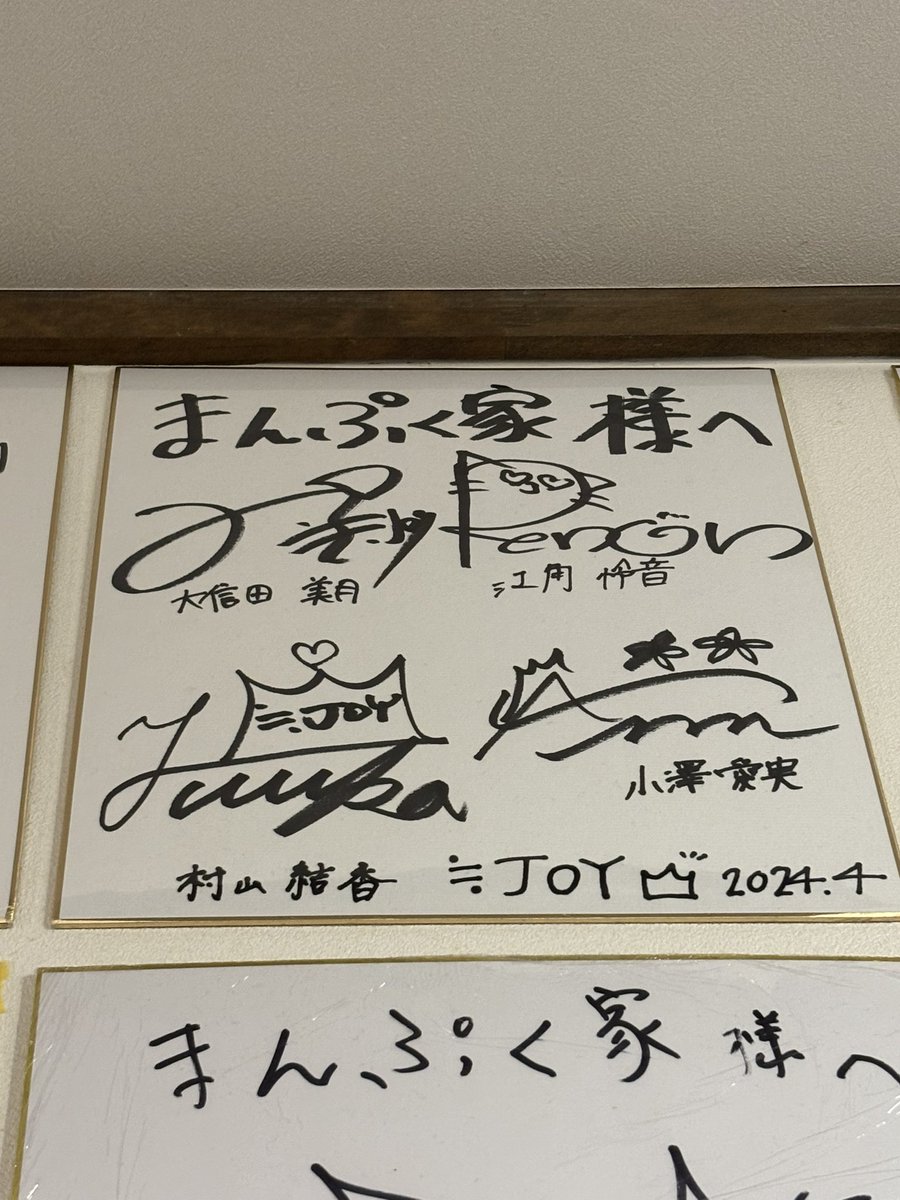 まんぷく家 様へ
RenOn
大信田 美月 江角 怜音
≒JOY
Yuuka
小澤 愛実
村山 結香 ≒JOY 2024.4
まんぷく家 様へ